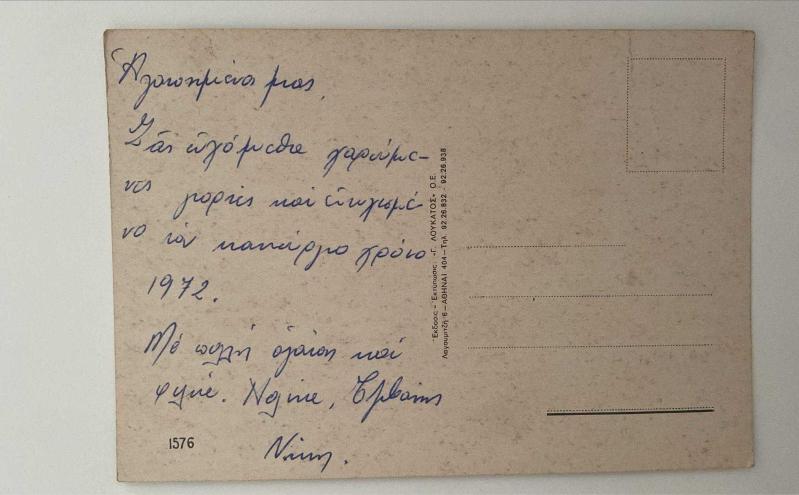 Ἀγαπημένοι μας,
Σᾶς εὐχόμεθα χαρούμε-
νες γιορτές καί εὐτυχισμέ-
νο τόν καινούργιο χρόνο
1972.
Μέ πολλή ἀγάπη καί
φιλιά.
Νίκη.
1576
Ἔκδοσις - Ἐκτύπωσις: «Γ. ΛΟΥΚΑΤΟΣ» Ο.Ε.
Λαγουμιτζῆ 6 - ΑΘΗΝΑΙ 404 - Τηλ. 92.26.832 - 92.26.938